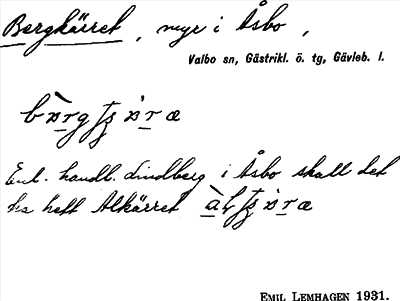 Bergkärret, myr i Åsbo,
Valbo sn, Gästrikl. ö. tg, Gävleb. l.
Enl. handl. Lindberg i Åsbo skall det
ha hett Alkärret
EMIL LEMHAGEN 1931.